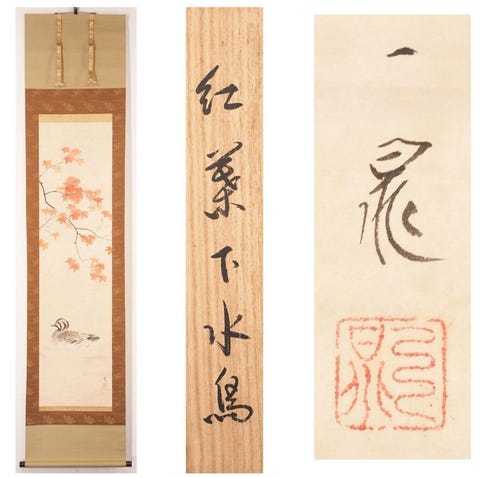 紅葉下水鳥
一晁